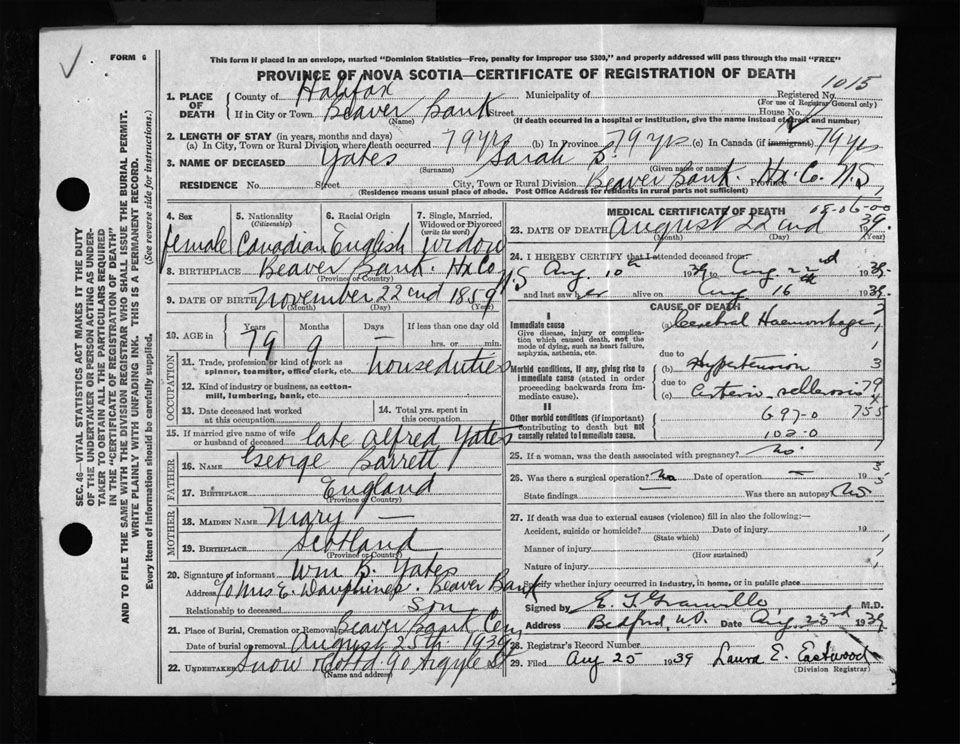 FORM 6
This form if placed in an envelope, marked "Dominion Statistics—Free, penalty for improper use $300," and properly addressed will pass through the mail "FREE"
PROVINCE OF NOVA SCOTIA—CERTIFICATE OF REGISTRATION OF DEATH
1015
1. PLACE OF DEATH
County of Halifax Municipality of Registered No.
(For use of Registrar General only)
If in City or Town Beaver Bank Street House No.
(Name) (If death occurred in a hospital or institution, give the name instead of street and number)
2. LENGTH OF STAY (in years, months and days)
(a) In City, Town or Rural Division where death occurred 79 yrs (b) In Province 79 yrs (c) In Canada (if immigrant) 79 yrs
3. NAME OF DECEASED Yates Sarah
(Surname) (Given name or names)
RESIDENCE No. Street City, Town or Rural Division Beaver Bank. Hx. Co. Province N.S.
(Residence means usual place of abode. Post Office Address for residents in rural parts not sufficient)
4. Sex
female
5. Nationality (Citizenship)
Canadian
6. Racial Origin
English
7. Single, Married, Widowed or Divorced (write the word)
widow
8. BIRTHPLACE Beaver Bank. Hx Co N.S
(Province or Country)
9. DATE OF BIRTH November 22nd 1859
(Month) (Day) (Year)
10. AGE in Years Months Days If less than one day old
79 9 — hrs. or min.
OCCUPATION
11. Trade, profession or kind of work as spinner, teamster, office clerk, etc. house duties
12. Kind of industry or business, as cotton-mill, lumbering, bank, etc.
13. Date deceased last worked at this occupation
14. Total yrs. spent in this occupation
15. If married give name of wife or husband of deceased late Alfred Yates
FATHER
16. NAME George Barrett
17. BIRTHPLACE England
(Province or Country)
MOTHER
18. MAIDEN NAME Mary —
19. BIRTHPLACE Scotland
(Province or Country)
20. Signature of informant Wm B. Yates
Address c/o Mrs E. Dauphinee Beaver Bank
Relationship to deceased Son
21. Place of Burial, Cremation or Removal Beaver Bank Cem
Date of burial or removal August 25th 1939
22. UNDERTAKER Snow & Co Ltd 90 Argyle St
(Name and address)
MEDICAL CERTIFICATE OF DEATH
23. DATE OF DEATH August 22nd 1939
(Month) (Day) (Year)
24. I HEREBY CERTIFY that I attended deceased from:
Aug. 10th 1939 to Aug 22nd 1939
and last saw her alive on Aug 16th 1939.
CAUSE OF DEATH
I
Immediate cause
Give disease, injury or complication which caused death, not the mode of dying, such as heart failure, asphyxia, asthenia, etc.
(a) Cerebral Haemorrhage
due to
Morbid conditions, if any, giving rise to immediate cause (stated in order proceeding backwards from immediate cause).
(b) Hypertension
due to
(c) Arterio-sclerosis
II
Other morbid conditions (if important) contributing to death but not causally related to immediate cause.
G 97-0
102-0
25. If a woman, was the death associated with pregnancy? no.
26. Was there a surgical operation? No Date of operation — 193
State findings Was there an autopsy? No
27. If death was due to external causes (violence) fill in also the following:—
Accident, suicide or homicide? Date of injury 19
(State which)
Manner of injury
(How sustained)
Nature of injury
Specify whether injury occurred in industry, in home, or in public place
Signed by M.D.
Address Bedford, Date Aug. 23rd 1939
28. Registrar's Record Number
29. Filed Aug 25 1939 Laura E. Eastwood
(Division Registrar)
SEC. 46—VITAL STATISTICS ACT MAKES IT THE DUTY
OF THE UNDERTAKER OR PERSON ACTING AS UNDER-
TAKER TO OBTAIN ALL THE PARTICULARS REQUIRED
IN THE "CERTIFICATE OF REGISTRATION OF DEATH"
AND TO FILE THE SAME WITH THE DIVISION REGISTRAR WHO SHALL ISSUE THE BURIAL PERMIT.
WRITE PLAINLY WITH UNFADING INK. THIS IS A PERMANENT RECORD.
Every item of information should be carefully supplied. (See reverse side for instructions.)